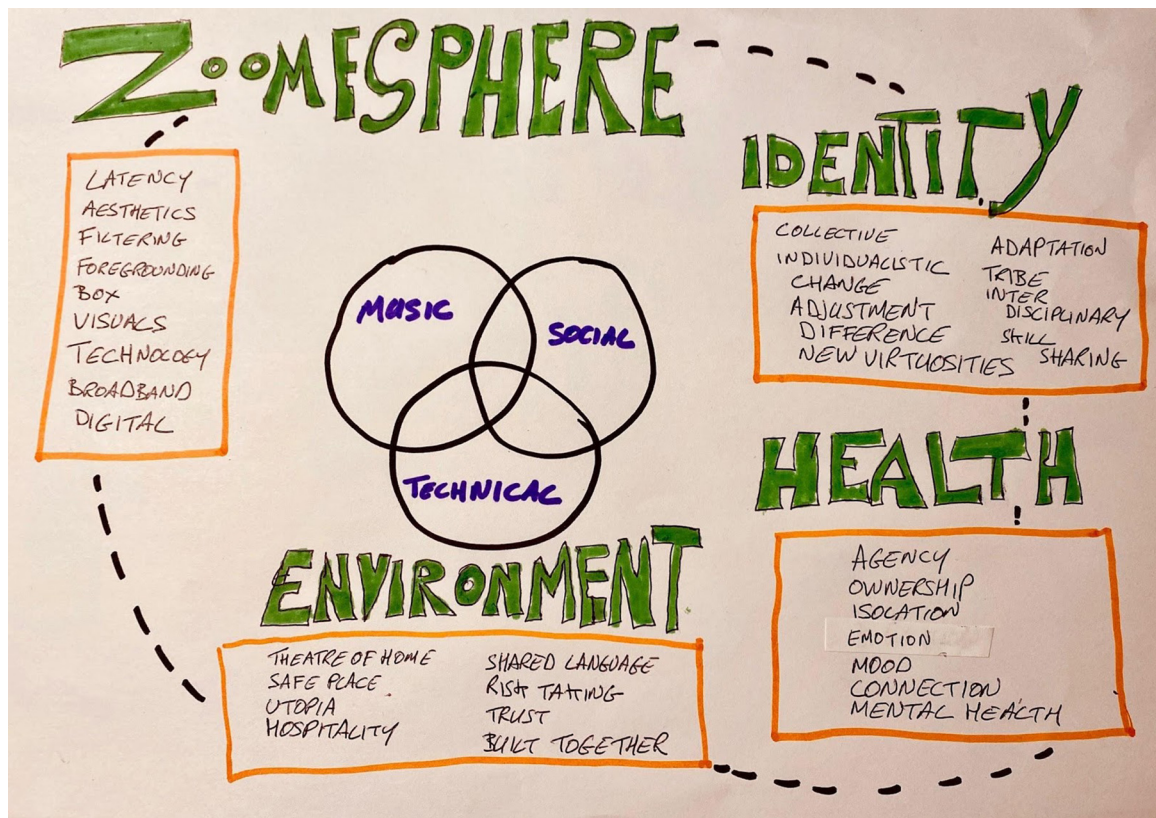 ZOOMESPHERE
LATENCY
AESTHETICS
FILTERING
FOREGROUNDING
BOX
VISUALS
TECHNOLOGY
BROADBAND
DIGITAL
IDENTITY
COLLECTIVE
INDIVIDUALISTIC
CHANGE
ADJUSTMENT
DIFFERENCE
NEW VIRTUOSITIES
ADAPTATION
TRIBE
INTER
DISCIPLINARY
SKILL
SHARING
MUSIC
SOCIAL
TECHNICAL
HEALTH
AGENCY
OWNERSHIP
ISOLATION
EMOTION
MOOD
CONNECTION
MENTAL HEALTH
ENVIRONMENT
THEATRE OF HOME
SAFE PLACE
UTOPIA
HOSPITALITY
SHARED LANGUAGE
RISK TAKING
TRUST
BUILT TOGETHER